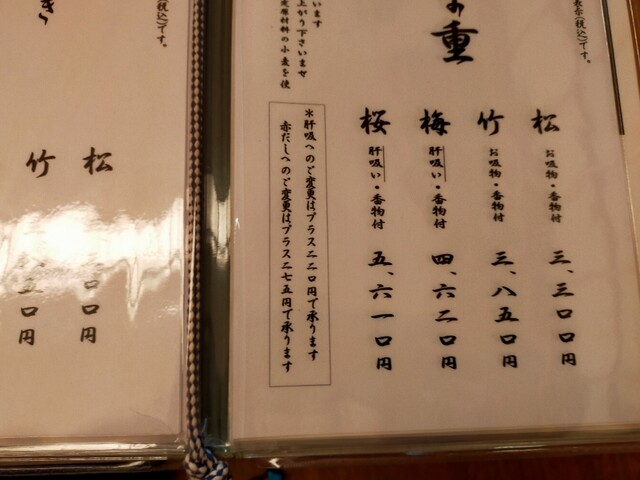 表示(税込)です。
お重
松 お吸物・香物付 三、三〇〇円
竹 お吸物・香物付 三、八五〇円
梅 肝吸い・香物付 四、六二〇円
桜 肝吸い・香物付 五、六一〇円
＊肝吸へのご変更はプラス二二〇円で承ります
赤だしへのご変更はプラス二七五円で承ります
います
上がり下さいませ
原材料の小麦を使
(税込)です。
き
松 〇〇円
竹 五〇円